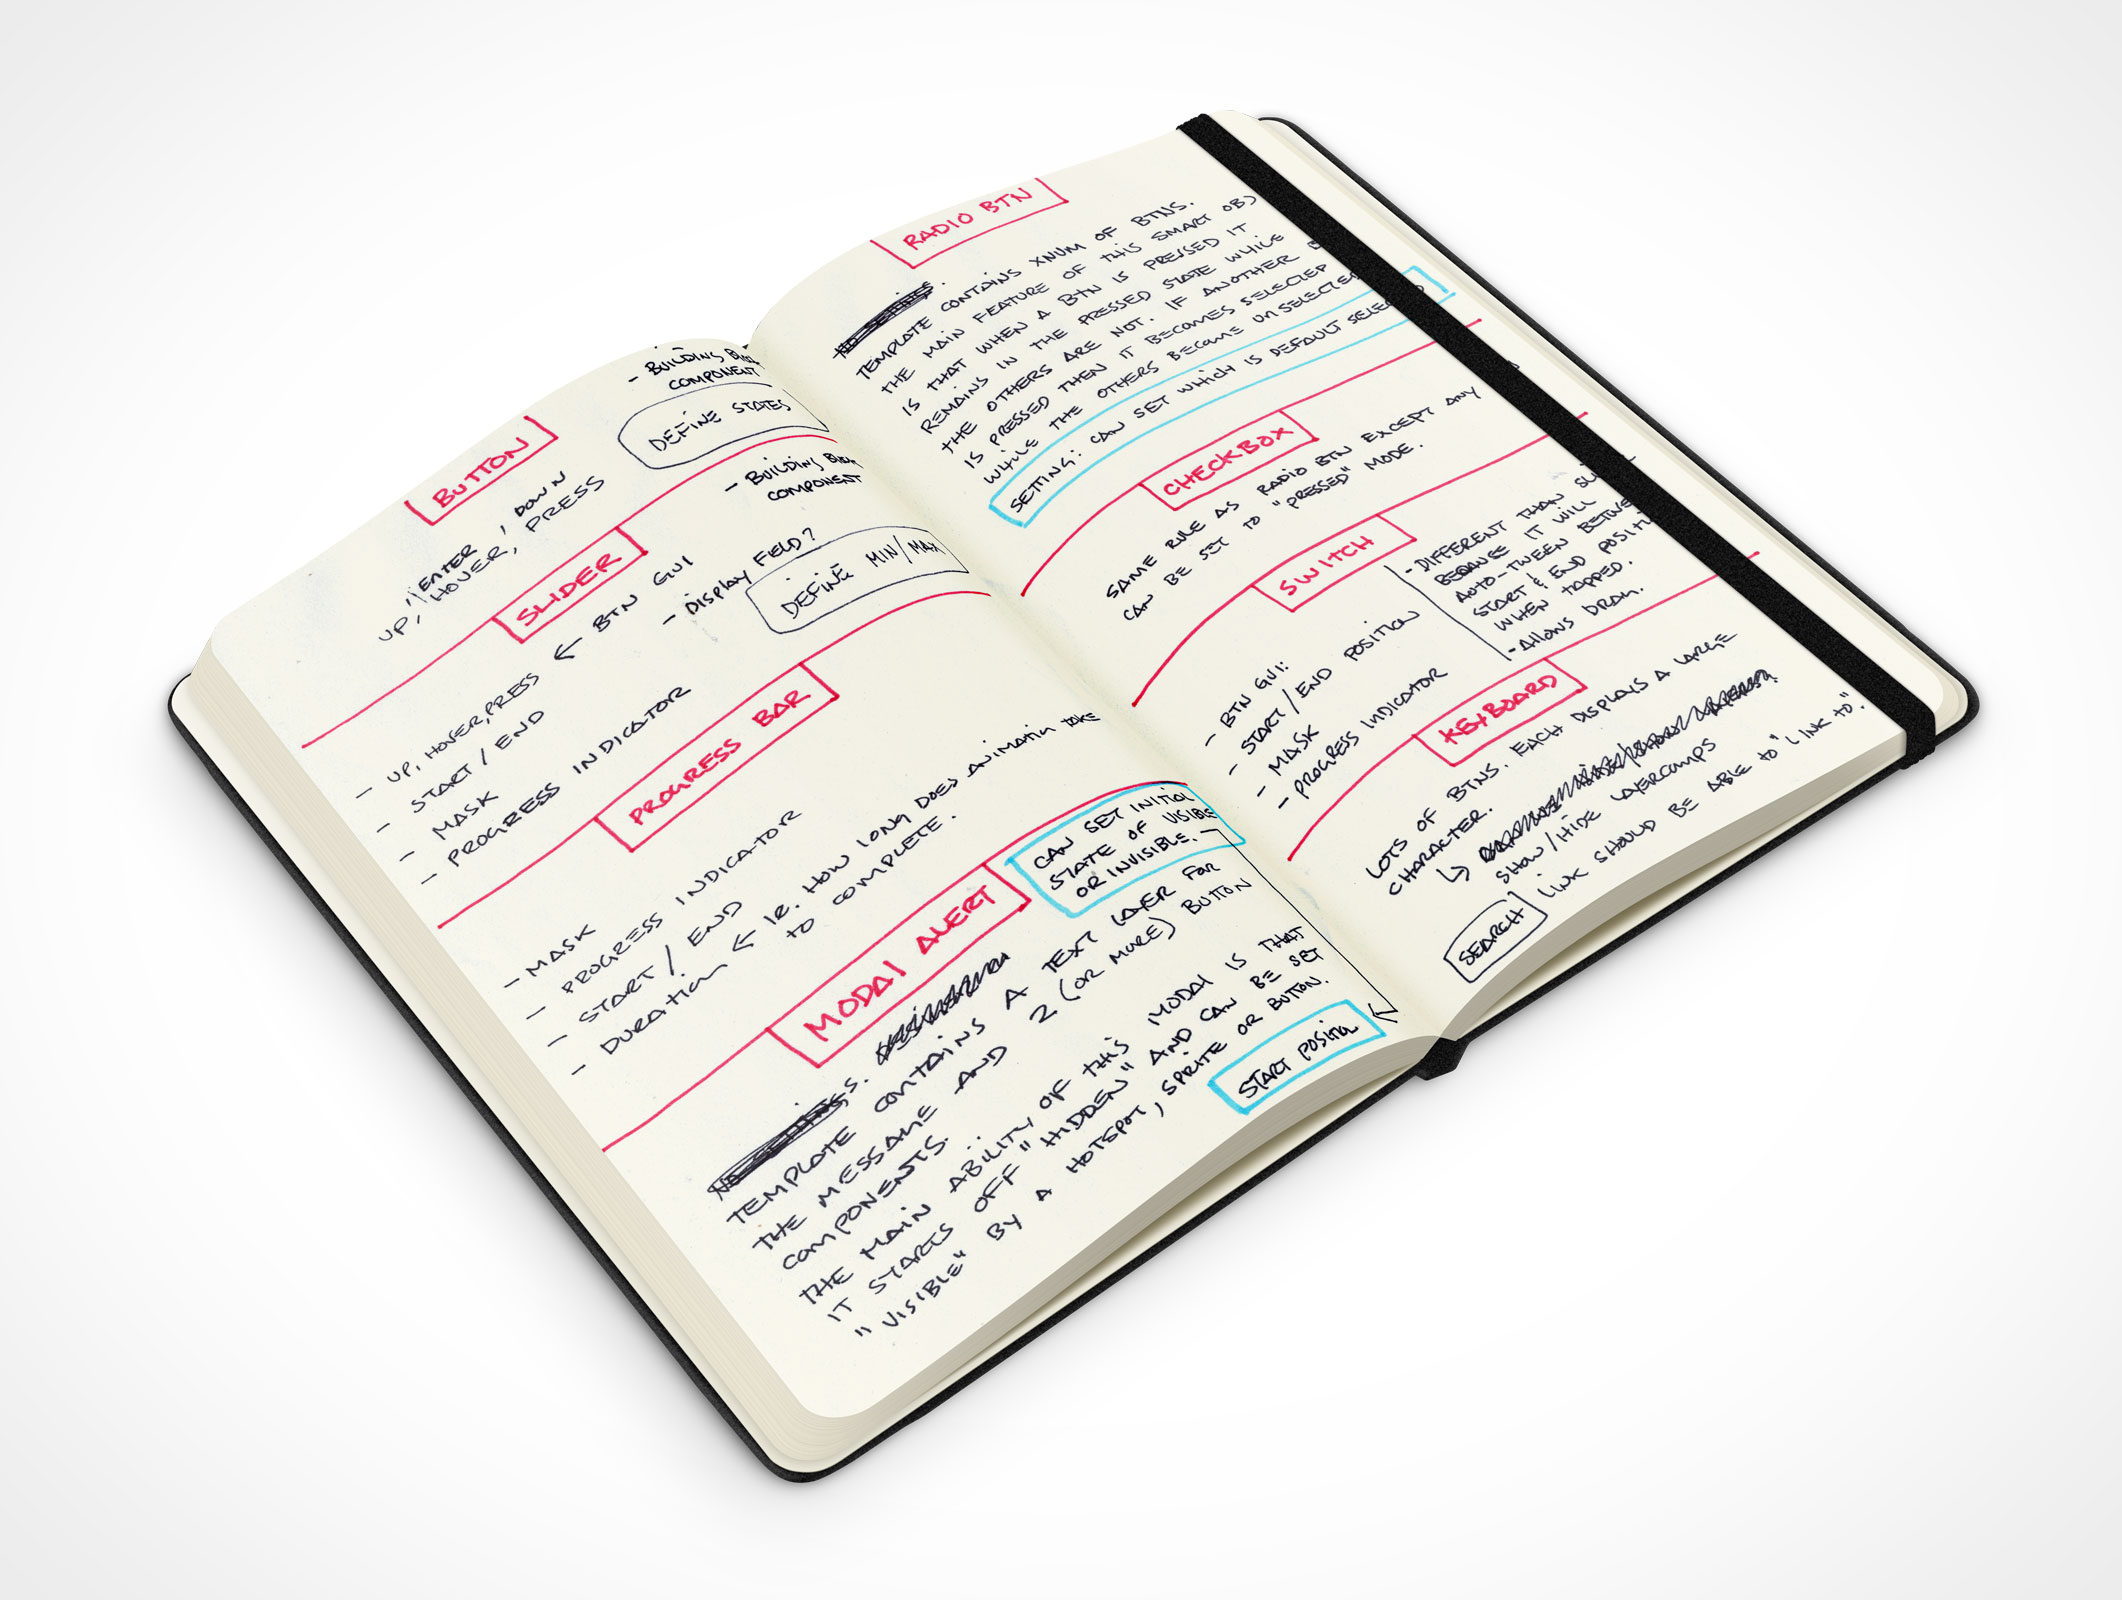 BUTTON
- BUILDING BLOCK
COMPONENT
DEFINE STATES
UP, ENTER, DOWN
HOVER, PRESS
SLIDER
- BUILDING BLOCK
COMPONENT
← BTN GUI
- DISPLAY FIELD?
DEFINE MIN/MAX
- UP, HOVER, PRESS
- START / END
- MASK
- PROGRESS INDICATOR
PROGRESS BAR
- MASK
- PROGRESS INDICATOR
- START / END
- DURATION ← IE. HOW LONG DOES ANIMATION TAKE
TO COMPLETE.
MODAL ALERT
CAN SET INITIAL
STATE OF VISIBLE
OR INVISIBLE.
TEMPLATE CONTAINS A TEXT LAYER FOR
THE MESSAGE AND 2 (OR MORE) BUTTON
COMPONENTS.
THE MAIN ABILITY OF THIS MODAL IS THAT
IT STARTS OFF "HIDDEN" AND CAN BE SET
"VISIBLE" BY A HOTSPOT, SPRITE OR BUTTON.
START POSITION
RADIO BTN
NO SETTINGS.
TEMPLATE CONTAINS XNUM OF BTNS.
THE MAIN FEATURE OF THIS SMART OBJ
IS THAT WHEN A BTN IS PRESSED IT
REMAINS IN THE PRESSED STATE WHILE
THE OTHERS ARE NOT. IF ANOTHER
IS PRESSED THEN IT BECOMES SELECTED
WHILE THE OTHERS BECOME UNSELECTED
SETTING: CAN SET WHICH IS DEFAULT SELECTED
CHECKBOX
SAME RULE AS RADIO BTN EXCEPT ANY
CAN BE SET TO "PRESSED" MODE.
SWITCH
- DIFFERENT THAN
BECAUSE IT WILL
AUTO-TWEEN BETWEEN
START & END POSITION
WHEN TAPPED.
- ALLOWS DRAG.
- BTN GUI:
- START / END POSITION
- MASK
- PROGRESS INDICATOR
KEYBOARD
LOTS OF BTNS. EACH DISPLAYS A LARGE
CHARACTER.
↳ SHOW/HIDE LAYERCOMPS
SEARCH LINK SHOULD BE ABLE TO "LINK TO".